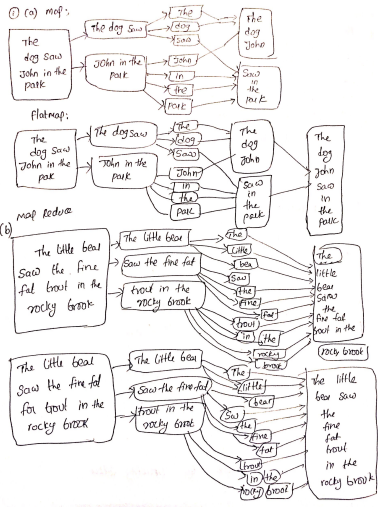 (i) (a) map:
The
dog saw
John in the
park
The dog saw
John in the
park
The
dog
saw
John
in
the
park
The
dog
John
saw
in
the
park
flatmap:
The
dog saw
John in the
park
The dog saw
John in the
park
The
dog
saw
John
in
the
park
The
dog
John
saw
in
the park
The
dog
John
saw
in
the
park
map Reduce
(b)
The little bear
saw the fine
fat trout in the
rocky brook
The little bear
saw the fine fat
trout in the
rocky brook
The
little
bea
saw
the
fine
fat
trout
in the
rocky
brook
The
little
bear
saw
the
fine fat
trout in the
rock brook
The little bear
saw the fine fat
for trout in the
rocky brook
The little bear
saw the fine fat
trout in the
rocky brook
The
little
bear
Sw
the
fine
fat
trout
in the
rocky brook
The little
bear saw
the
fine
fat
trout
in the
rocky brook